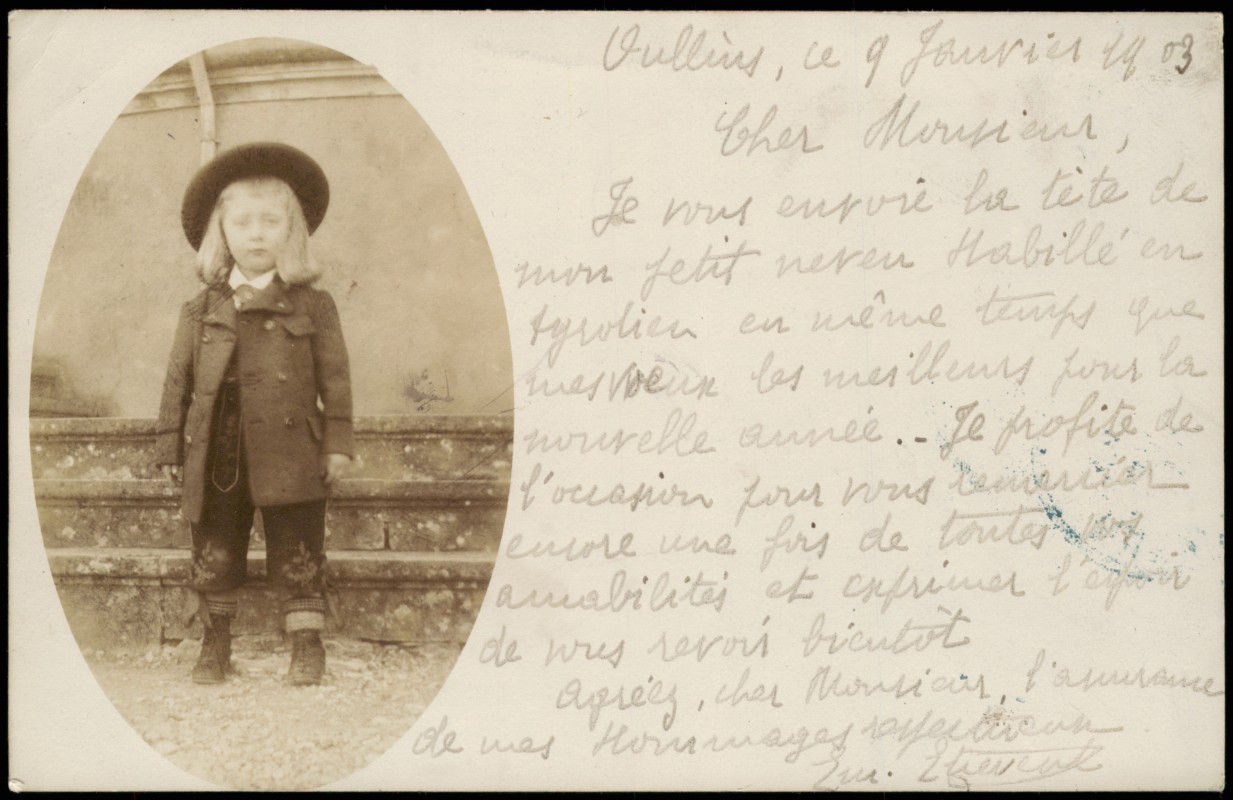 Oullins, ce 9 Janvier 1903
Cher Monsieur,
Je vous envoie la tête de
mon petit neveu Habillé en
tyrolien en même temps que
mes vœux les meilleurs pour la
nouvelle année. - Je profite de
l'occasion pour vous remercier
encore une fois de toutes vos
amabilités et exprimer l'espoir
de vous revoir bientôt
Agréez, cher Monsieur, l'assurance
de mes Hommages respectueux
Em.